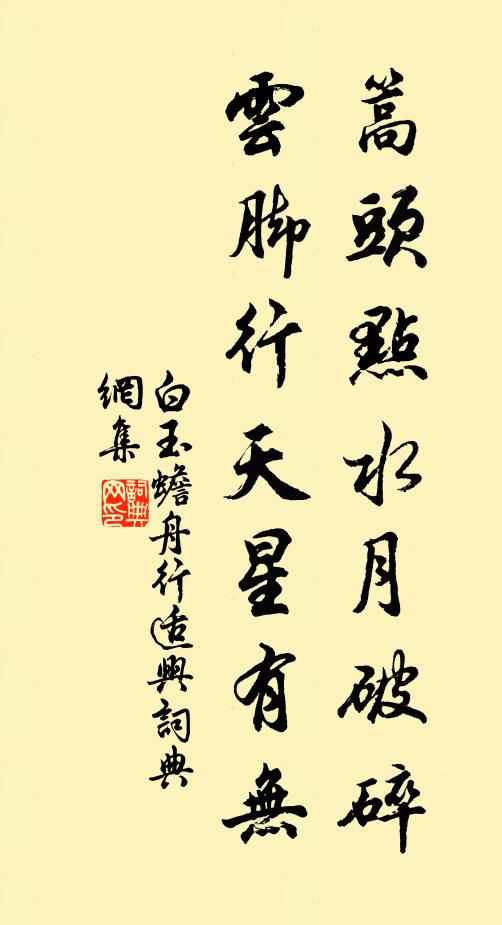 蒿頭點水月破碎
雲脚行天星有無
白玉蟾舟行適興詞典
網集
詞典
网印